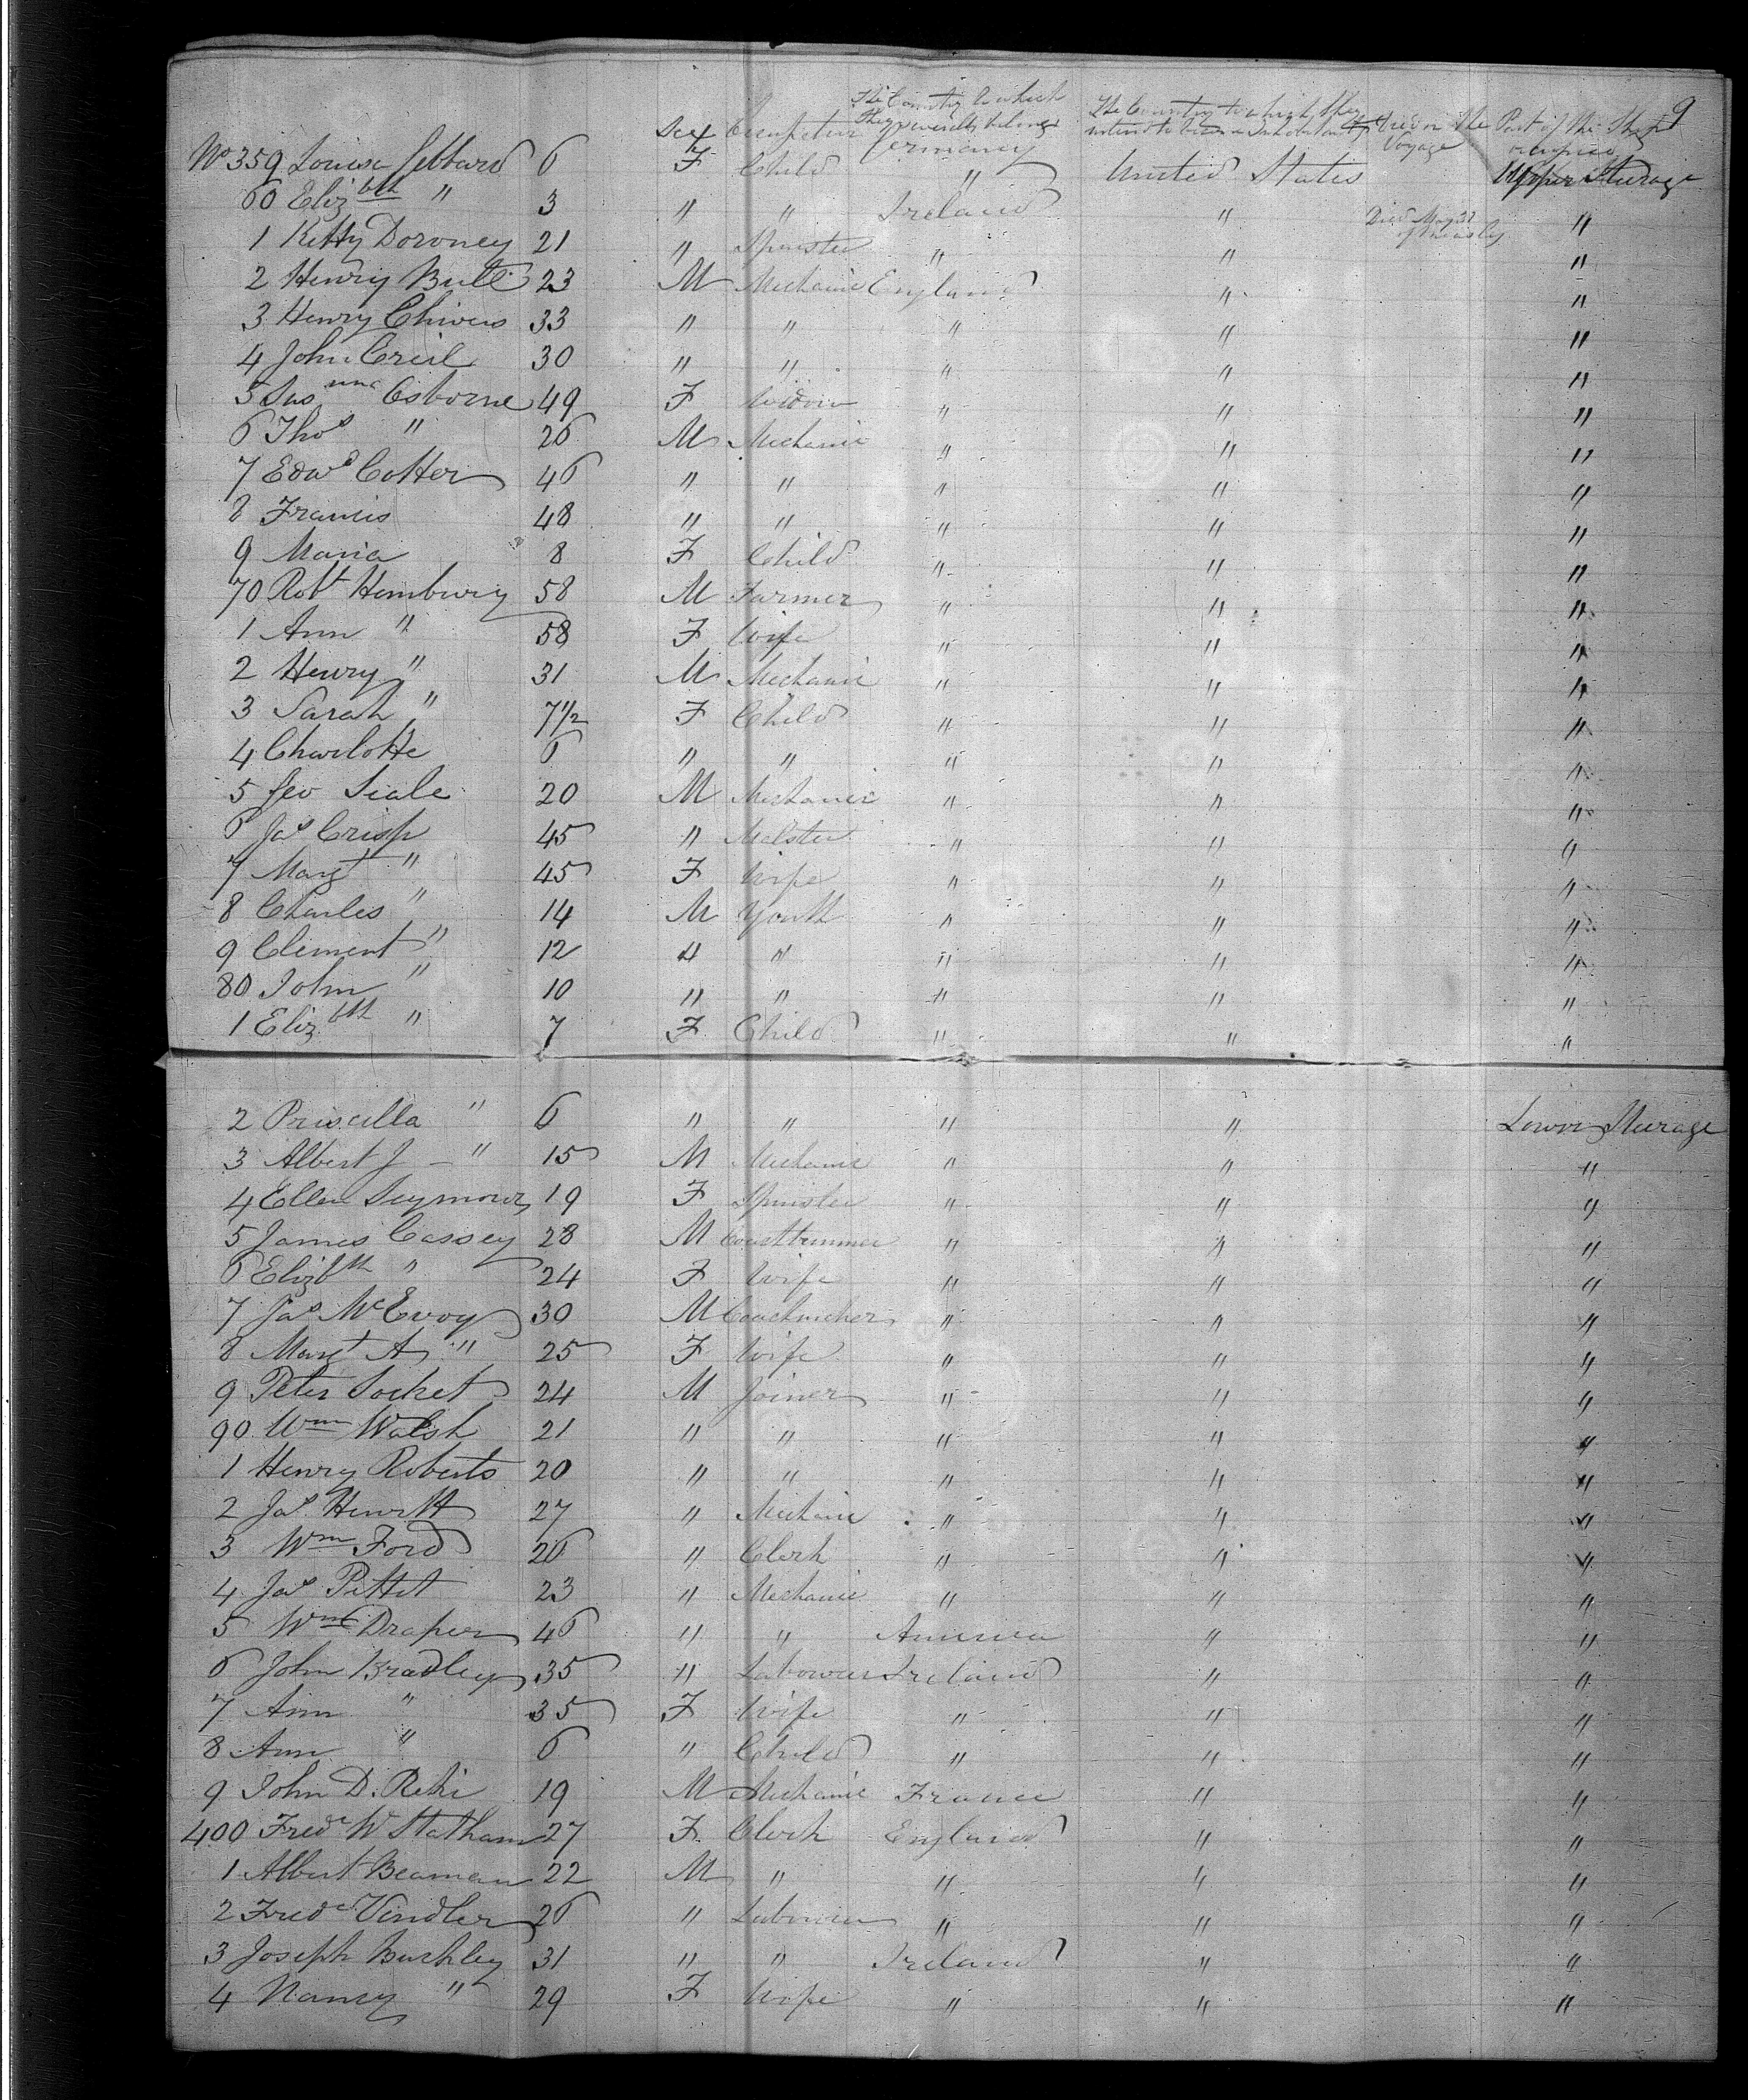 9
Sex Occupation The Country to which they severally belong The Country to which they intend to become Inhabitants Died on the Voyage Part of the Ship occupied
No 359 Louisa Gebbard 6 F Child Germany United States Upper Steerage
60 Eliz bth " 3 " " " " Died May 31 "
1 Kitty Doroney 21 " Spinster Ireland " "
2 Henry Bull 23 M Mechanic England " "
3 Henry Chivers 33 " " " " "
4 John 30 " " " " "
5 Sus nna Osborne 49 F Widow " " "
6 Thos " 26 M Mechanic " " "
7 Edwd Cotter 46 " " " " "
8 Francis 48 " " " " "
9 Maria 8 F Child " " "
70 Robt Hembury 58 M Farmer " " "
1 Ann " 58 F Wife " " "
2 Henry " 31 M Mechanic " " "
3 Sarah " 7 1/2 F Child " " "
4 Charlotte 6 " " " " "
5 Geo Seale 20 M Mechanic " " "
6 Jas Crisp 45 " Malster " " "
7 Margt " 45 F Wife " " "
8 Charles " 14 M Youth " " "
9 Clement " 12 " " " " "
80 John " 10 " " " " "
1 Eliz bth " 7 F Child " " "
2 Priscilla " 6 " " " " Lower Steerage
3 Albert J - " 15 M Mechanic " " "
4 Ellen Seymour 19 F Spinster " " "
5 James Cassey 28 M " " "
6 Elizbth " 24 F Wife " " "
7 Jas McEvoy 30 M Coachmaker " " "
8 Margt A " 25 F Wife " " "
9 Peter Socket 24 M Joiner " " "
90 Wm Walsh 21 " " " " "
1 Henry Roberts 20 " " " " "
2 Jas Hewitt 27 " Mechanic " " "
3 Wm Ford 26 " Clerk " " "
4 Jas Pettit 23 " Mechanic " " "
5 Wm Draper 46 " " America " "
6 John Bradley 35 " Labourer Ireland " "
7 Ann " 35 F Wife " " "
8 Ann " 6 " Child " " "
9 John D. 19 M Mechanic France " "
400 Fredc W Statham 27 F Clerk England " "
1 Albert Beaman 22 M " " " "
2 Fredc Vindler 26 " Labourer " " "
3 Joseph Buckley 31 " " Ireland " "
4 Nancy " 29 F Wife " " "